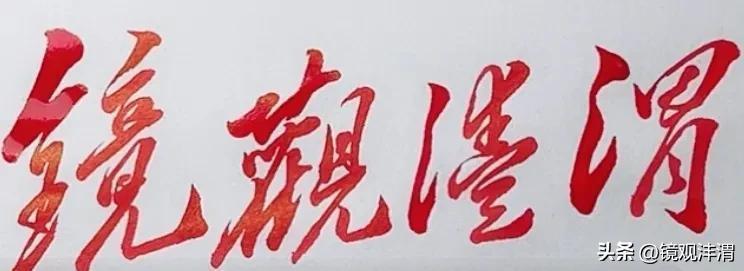 镜觀灃渭
头条 @镜观沣渭